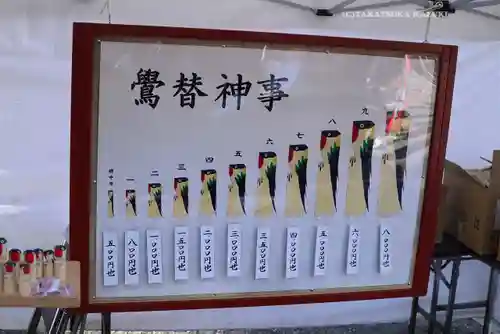 鷽替神事
一
二
三
四
五
六
七
八
九
五〇〇円也
八〇〇円也
一〇〇〇円也
一五〇〇円也
二〇〇〇円也
三〇〇〇円也
三五〇〇円也
四〇〇〇円也
五〇〇〇円也
六〇〇〇円也
八〇〇〇円也